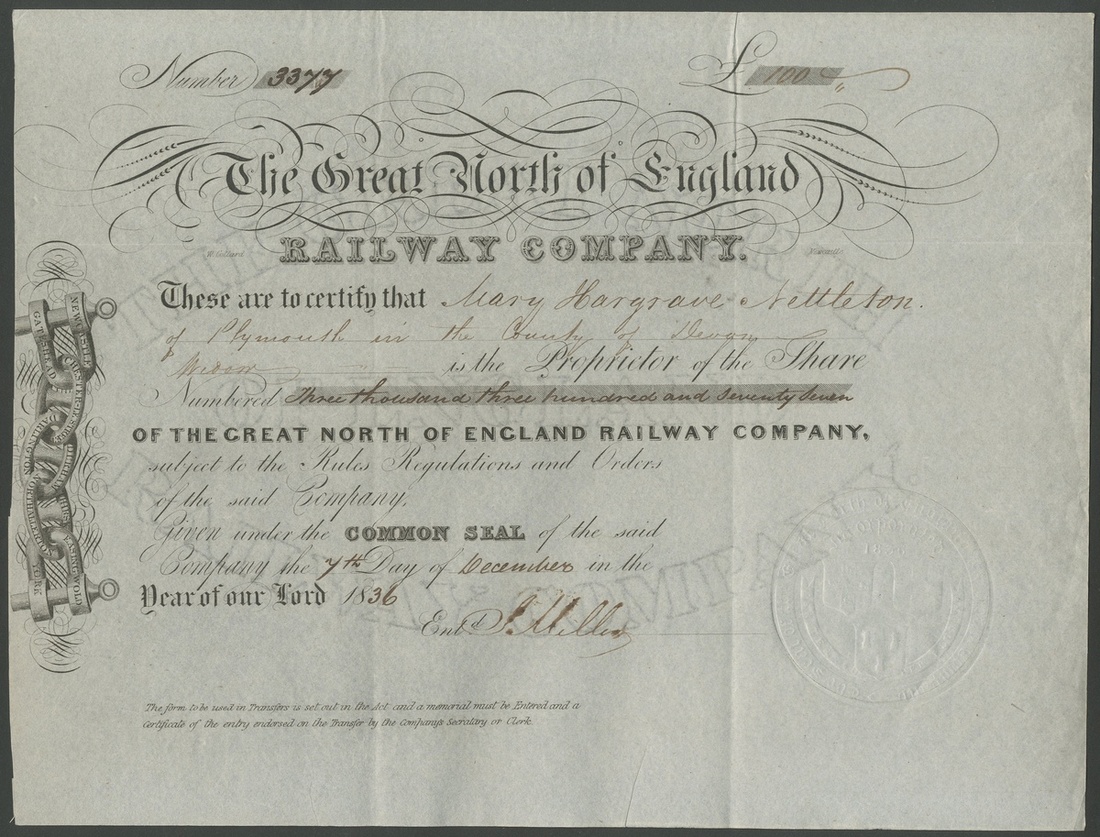 Number 3377
£ 100
The Great North of England
RAILWAY COMPANY.
These are to certify that Mary Hargrave Nettleton.
of Plymouth in the County of Devon
Widow is the Proprietor of the Share
Numbered Three thousand three hundred and seventy seven
OF THE GREAT NORTH OF ENGLAND RAILWAY COMPANY,
subject to the Rules Regulations and Orders
of the said Company,
Given under the COMMON SEAL of the said
Company the 7th Day of December in the
Year of our Lord 1836
Entd.
The form to be used in Transfers is set out in the Act and a memorial must be Entered and a
Certificate of the entry endorsed on the Transfer by the Company's Secretary or Clerk.
NEWCASTLE
GATESHEAD
DURHAM
DARLINGTON
NORTHALLERTON
THIRSK
EASINGWOLD
YORK